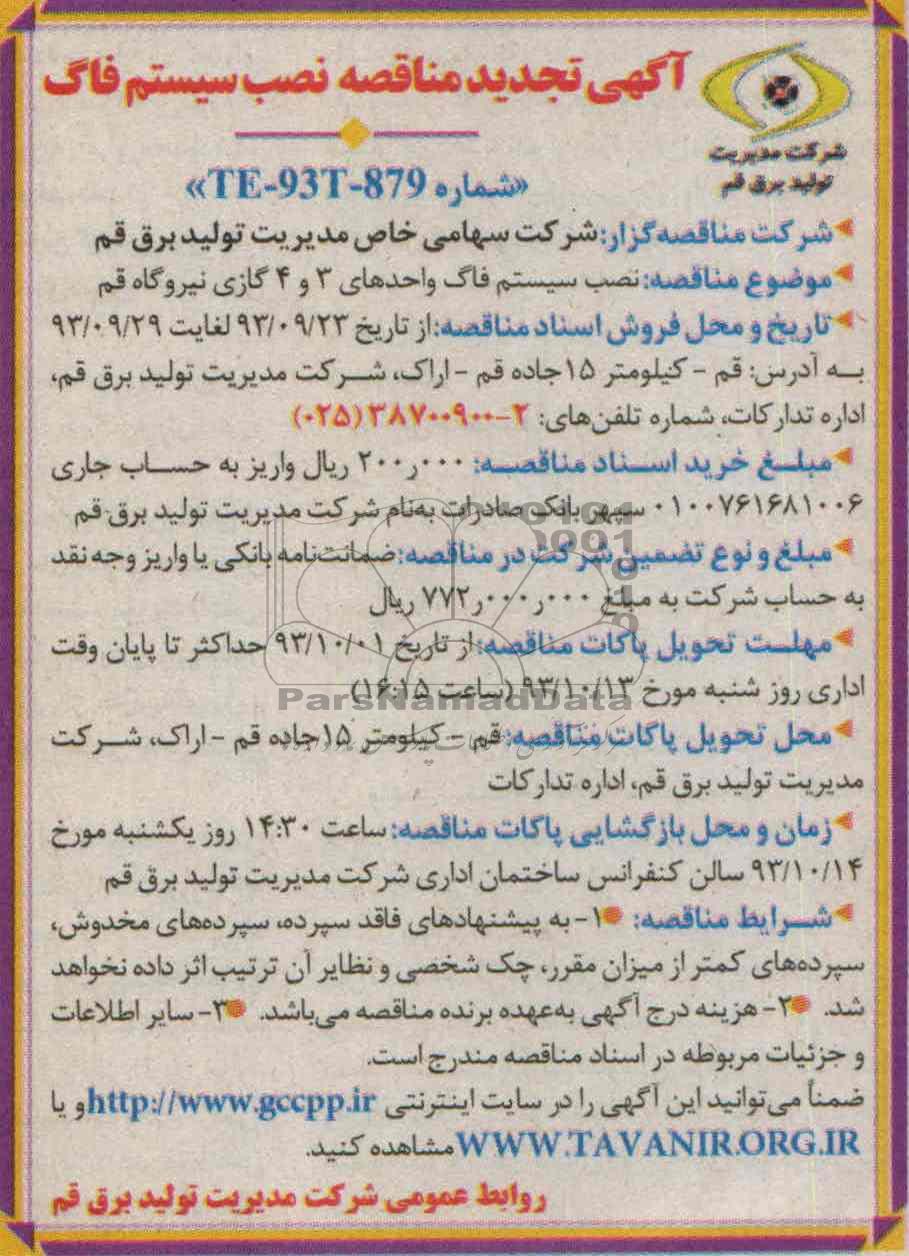 آگهی تجدید مناقصه نصب سیستم فاگ
شرکت مدیریت
تولید برق قم
«شماره TE-93T-879»
شرکت مناقصه‌گزار: شرکت سهامی خاص مدیریت تولید برق قم
موضوع مناقصه: نصب سیستم فاگ واحدهای ۳ و ۴ گازی نیروگاه قم
تاریخ و محل فروش اسناد مناقصه: از تاریخ ۹۳/۰۹/۲۳ لغایت ۹۳/۰۹/۲۹
به آدرس: قم - کیلومتر ۱۵ جاده قم - اراک، شرکت مدیریت تولید برق قم،
اداره تدارکات، شماره تلفن‌های: ۲-۳۸۷۰۰۹۰۰ (۰۲۵)
مبلغ خرید اسناد مناقصه: ۲۰۰٫۰۰۰ ریال واریز به حساب جاری
۰۱۰۰۷۶۱۶۸۱۰۰۶ سپهر بانک صادرات به‌نام شرکت مدیریت تولید برق قم
مبلغ و نوع تضمین شرکت در مناقصه: ضمانت‌نامه بانکی یا واریز وجه نقد
به حساب شرکت به مبلغ ۷۷۲٫۰۰۰٫۰۰۰ ریال
مهلت تحویل پاکات مناقصه: از تاریخ ۹۳/۱۰/۰۱ حداکثر تا پایان وقت
اداری روز شنبه مورخ ۹۳/۱۰/۱۳ (ساعت ۱۶:۱۵)
ParsNamadData
محل تحویل پاکات مناقصه: قم - کیلومتر ۱۵ جاده قم - اراک، شرکت
مدیریت تولید برق قم، اداره تدارکات
زمان و محل بازگشایی پاکات مناقصه: ساعت ۱۴:۳۰ روز یکشنبه مورخ
۹۳/۱۰/۱۴ سالن کنفرانس ساختمان اداری شرکت مدیریت تولید برق قم
شرایط مناقصه: ۱- به پیشنهادهای فاقد سپرده، سپرده‌های مخدوش،
سپرده‌های کمتر از میزان مقرر، چک شخصی و نظایر آن ترتیب اثر داده نخواهد
شد. ۲- هزینه درج آگهی به‌عهده برنده مناقصه می‌باشد. ۳- سایر اطلاعات
و جزئیات مربوطه در اسناد مناقصه مندرج است.
ضمناً می‌توانید این آگهی را در سایت اینترنتی http://www.gccpp.ir و یا
WWW.TAVANIR.ORG.IR مشاهده کنید.
روابط عمومی شرکت مدیریت تولید برق قم